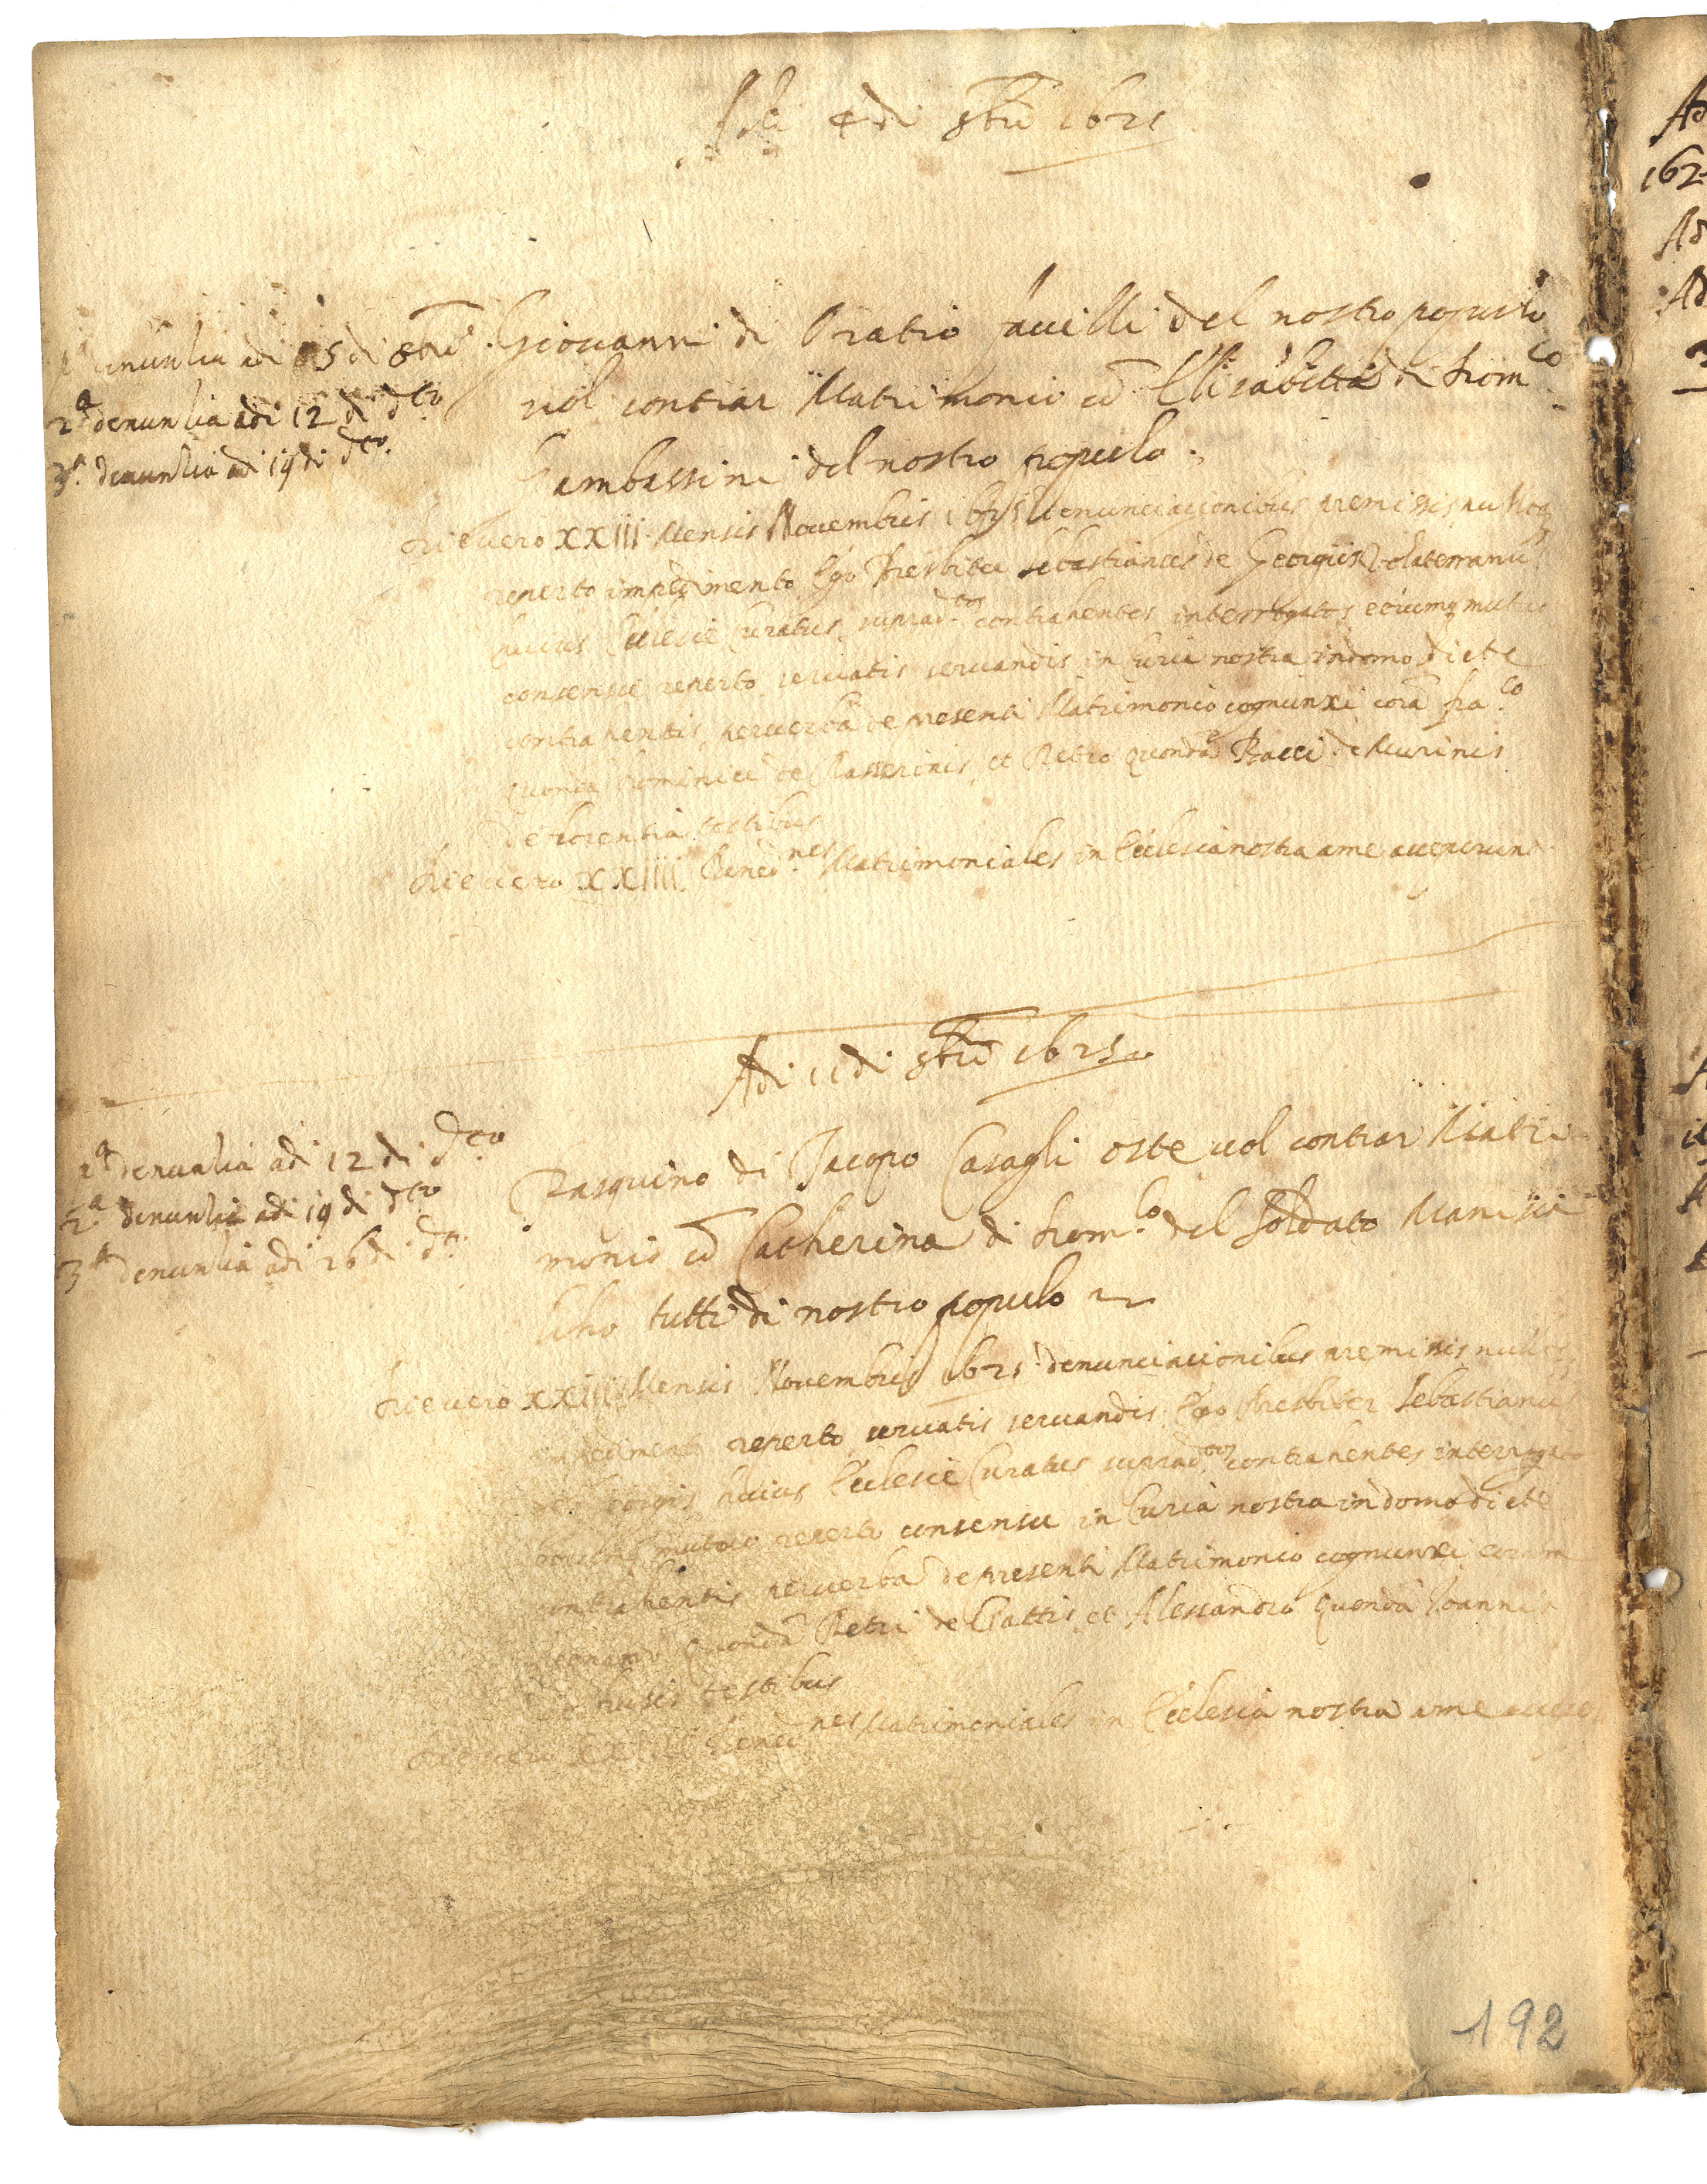 Adi 4 di 8bre 1625
1a denuntia adi 05 di 8bre
2a denuntia adi 12 di dto
3a denuntia adi 19 di dto.
Giovanni di Oratio del nostro populo
vol contrar Matrimonio cō Elisabetta di Domco
Gambassini del nostro populo.
Die vero XXIII Mensis Novembris 1625 denunciacionibus premissis nulloq
reperto impedimento Ego Presbiter Sebastianus de Georgiis Volaterranus
huius Ecclesie Curatus supradtos contrahentes interrogatos eorumq mutuo
consensu reperto servatis servandis in Curia nostra in domo dicte
contrahentis per verba de presenti Matrimonio cognunxi corā fraco
quondā Dominici de et Petro quondā de
de Florentia testibus
Die vero XXIIII Benednes Matrimoniales in Ecclesia nostra a me
Adi 11 di 8bre 1625
1a denuntia adi 12 di dto
2a denuntia adi 19 di dto
3a denuntia adi 26 di dto
Pasquino di Jacopo Casagli oste vol contrar Matri
monio cō Catherina di Domco del Soldato
tutti di nostro populo
Die vero XXIII Mensis Novembris 1625 denunciacionibus premissis nulloq
impedimento reperto servatis servandis Ego Presbiter Sebastianus
de Georgiis huius Ecclesie Curatus supradtos contrahentes
mutuo reperto consensu in Curia nostra in domo dicte
contrahentis per verba de presenti Matrimonio cognunxi coram
quondā Petri de Gattis et Alessandro quondā Joannis
testibus
Die vero Benednes Matrimoniales in Ecclesia nostra a me
192